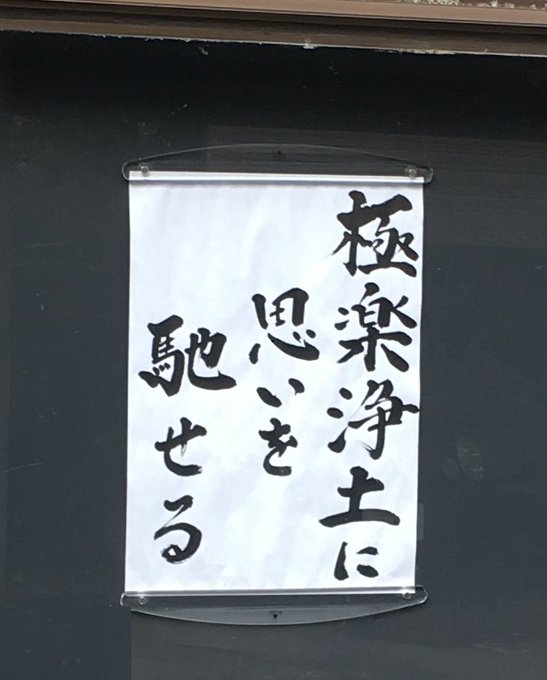 極楽浄土に
思いを
馳せる